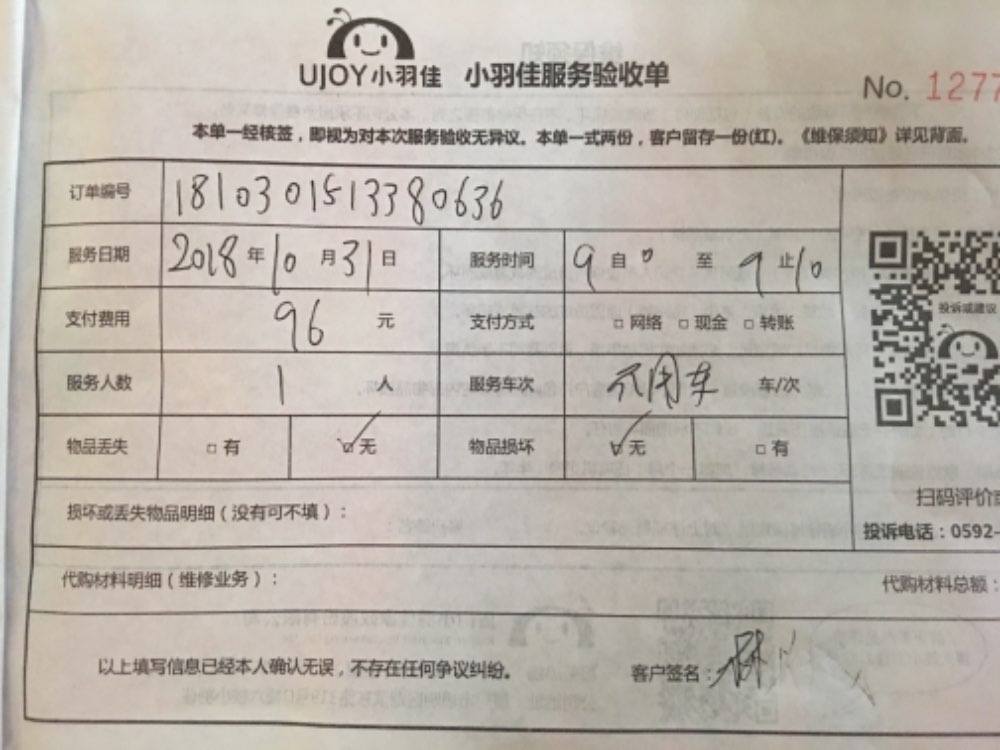 UJOY小羽佳 小羽佳服务验收单
No. 1277
本单一经核签，即视为对本次服务验收无异议。本单一式两份，客户留存一份(红)。《维保须知》详见背面。
订单编号 1810301513380636
服务日期 2018年10月31日 服务时间 9自0至9止10
投诉或建议
支付费用 96元 支付方式 □网络 □现金 □转账
服务人数 1人 服务车次 不用车 车/次
物品丢失 □有 ☑无 物品损坏 ☑无 □有
扫码评价或
损坏或丢失物品明细（没有可不填）：
投诉电话：0592-
代购材料明细（维修业务）： 代购材料总额：
以上填写信息已经本人确认无误，不存在任何争议纠纷。 客户签名：